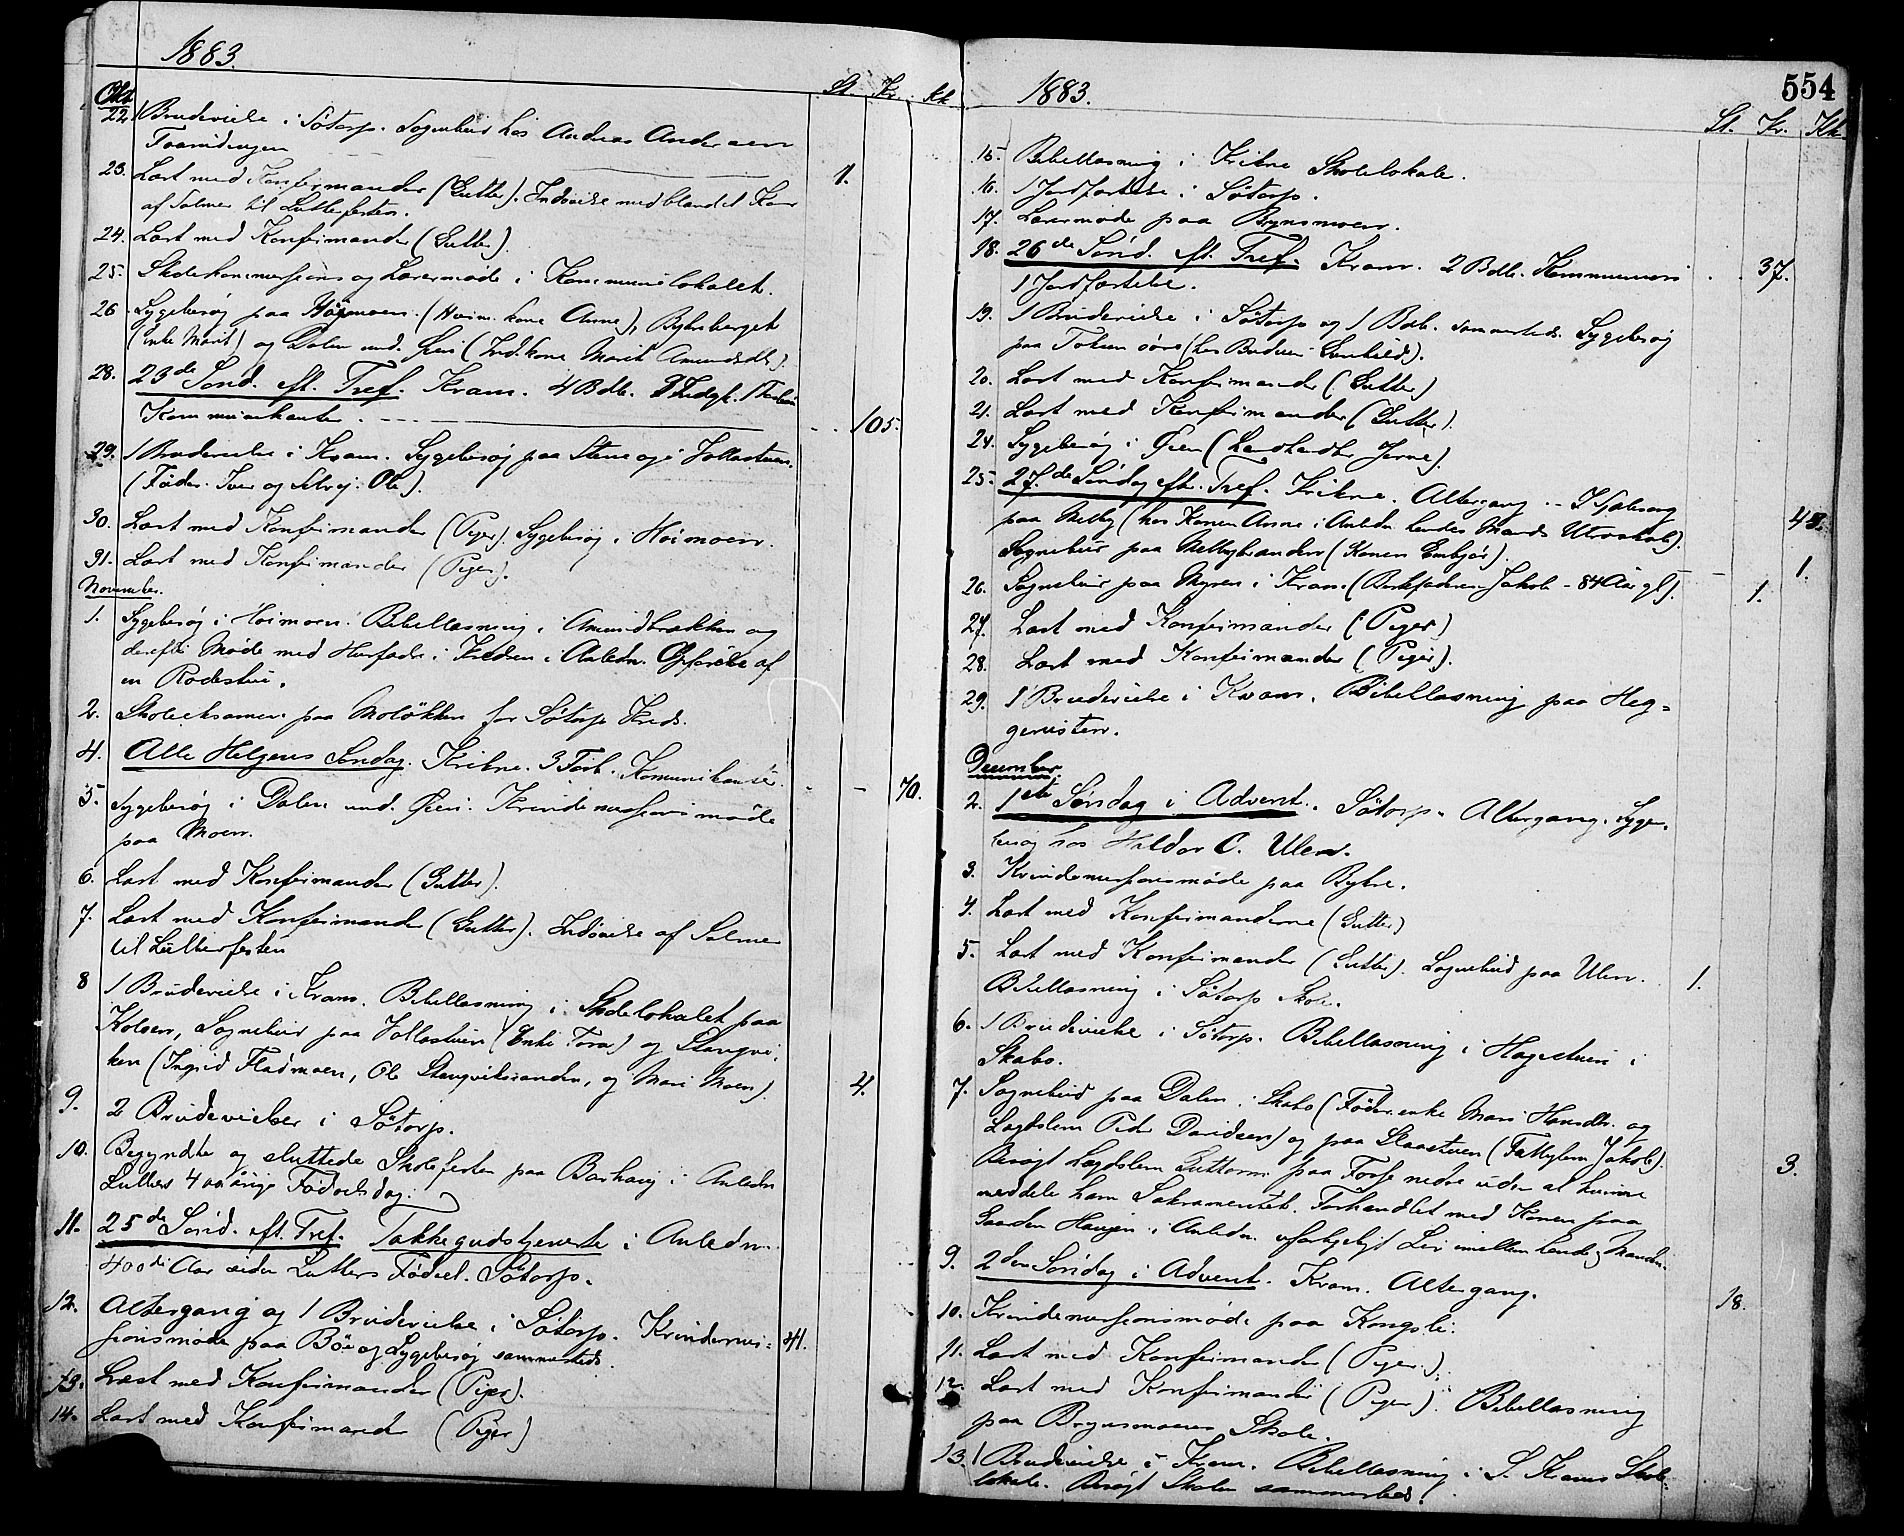 1883.
Okt.
St. Kr. Kk.
22. 1 Brudevielse i Sötorp. Sognebud hos Andreas Andersen
23. Læst med Konfirmander (Gutter). Indövelse med blandet Kor
1.
af Salmer til Lutherfesten.
24. Læst med Konfirmander (Gutter).
25. Skolekommissions og Lærermöde i Kommunelokalet.
26. Sygebesøg paa (Huusm. kone Anne), Bykrberget
(Enke Marit) og Dalen und. Öien (Ind. kone Marit Amundsdtr.)
28. 23de Sönd. eft. Tref. Kvam. 4 Bdb.
Kommunikanter. 105.
29. 1 Brudevielse i Kvam. Sygebesøg paa Stene og i Vollastuen.
(Föder. Iver og Selvej. Ole).
30. Læst med Konfirmander (Piger). Sygebesøg i Høimoen.
31. Læst med Konfirmander (Piger).
November.
1. Sygebesøg i Høimoen. Bibellæsning i Amundbakken og
derefter Möde med Husfædr. i Kredsen i Anledn. Opförelse af
en Rodestue.
2. Skoleeksamen paa Moløkken for Sötorp Kreds.
4. Alle Helgens Söndag. Vinkne. 3 Förb. Komunikanter. 70.
5. Sygebesøg i Dalen und. Öien. Kvindemissionsmöde
paa Moen.
6. Læst med Konfirmander (Gutter).
7. Læst med Konfirmander (Gutter). Indövelse af Salmer
til Lutherfesten
8 1 Brudevielse i Kvam. Bibellæsning i Skolelokalet paa
Kolven, Sognebud paa Vollastuen (Enke Tora) og Stangvi-
ken (Ingrid Fladmoen, Ole Stangviksanden, og Mari Moen). 4.
9. 2 Brudevielser i Sötorp.
10. Begyndte og sluttede Skolefesten paa Barhaug i Anledn
Luthers 400aarige Födselsdag.
11. 25de Sönd. eft. Tref. Takkegudstjeneste i Anledn.
400de Aar siden Luthers Födsel. Sötorp.
12. Altergang og 1 Brudevielse i Sötorp. Kvindemis- 41.
sionsmöde paa Böe og Sygebesøg sammesteds.
13. Læst med Konfirmander (Piger).
14. Læst med Konfirmander (Piger)
1883.
554
St. Kr. Kk.
15. Bibellæsning i Vinkne Skolelokale.
16. 1 Jordfæstelse i Sötorp.
17. Lærermöde paa Brynsmoen.
18. 26de Sönd. eft. Tref. Kvam. 2 Bdb. 37.
1 Jordfæstelse.
19. 1 Brudevielse i Sötorp og 1 Bdb. sammesteds. Sygebesøg
paa
20. Læst med Konfirmander (Gutter)
21. Læst med Konfirmander (Gutter).
24. Sygebesøg i Öien
25. 27de Söndag eft. Tref. Vinkne. Altergang.
paa Melby (hos Konen Anne i Anledn. hendes Mands Utroskab).
Sognebud paa Melbybranden (Konen Embjör). 1.
26. Sognebud paa Myren i Kvam (Jakob - 84 Aar gl). 1.
27. Læst med Konfirmander (Piger)
28. Læst med Konfirmander (Piger).
29. 1 Brudevielse i Kvam. Bibellæsning paa Heg-
gerusten.
December.
2. 1ste Söndag i Advent. Sötorp. Altergang. Syge-
besøg hos Haldor C. Ulen.
3. Kvindemissionsmöde paa Bykre.
4. Læst med Konfirmanderne (Gutter)
5. Læst med Konfirmander (Gutter). Sognebud paa Ulen. 1.
Bibellæsning i Sötorp Skole.
6. 1 Brudevielse i Sötorp. Bibellæsning i Hagestuen i
Skabo.
7. Sognebud paa Dalen i Skabo (Föder.enke Mari Hansdtr. og
Lægdslem Peder Davidsen) og paa Skaastuen (Fattiglem Jakob).
Besøgt Lægdslem Guttorm paa Forse nedre uden at kunne 3.
meddele ham Sakramentet. Forhandlet med Konen paa
Gaarden Haugen i Anledn. Liv imellem hende og Manden.
9. 2den Söndag i Advent. Kvam. Altergang. 18.
10. Kvindemissionsmöde paa Kongsli.
11. Læst med Konfirmander (Piger).
12. Læst med Konfirmander (Piger). Bibellæsning
paa Brynsmoens Skole.
13. 1 Brudevielse i Kvam. Bibellæsning i S. Kvams Skole-
lokale. Besøgt Skolen sammesteds.